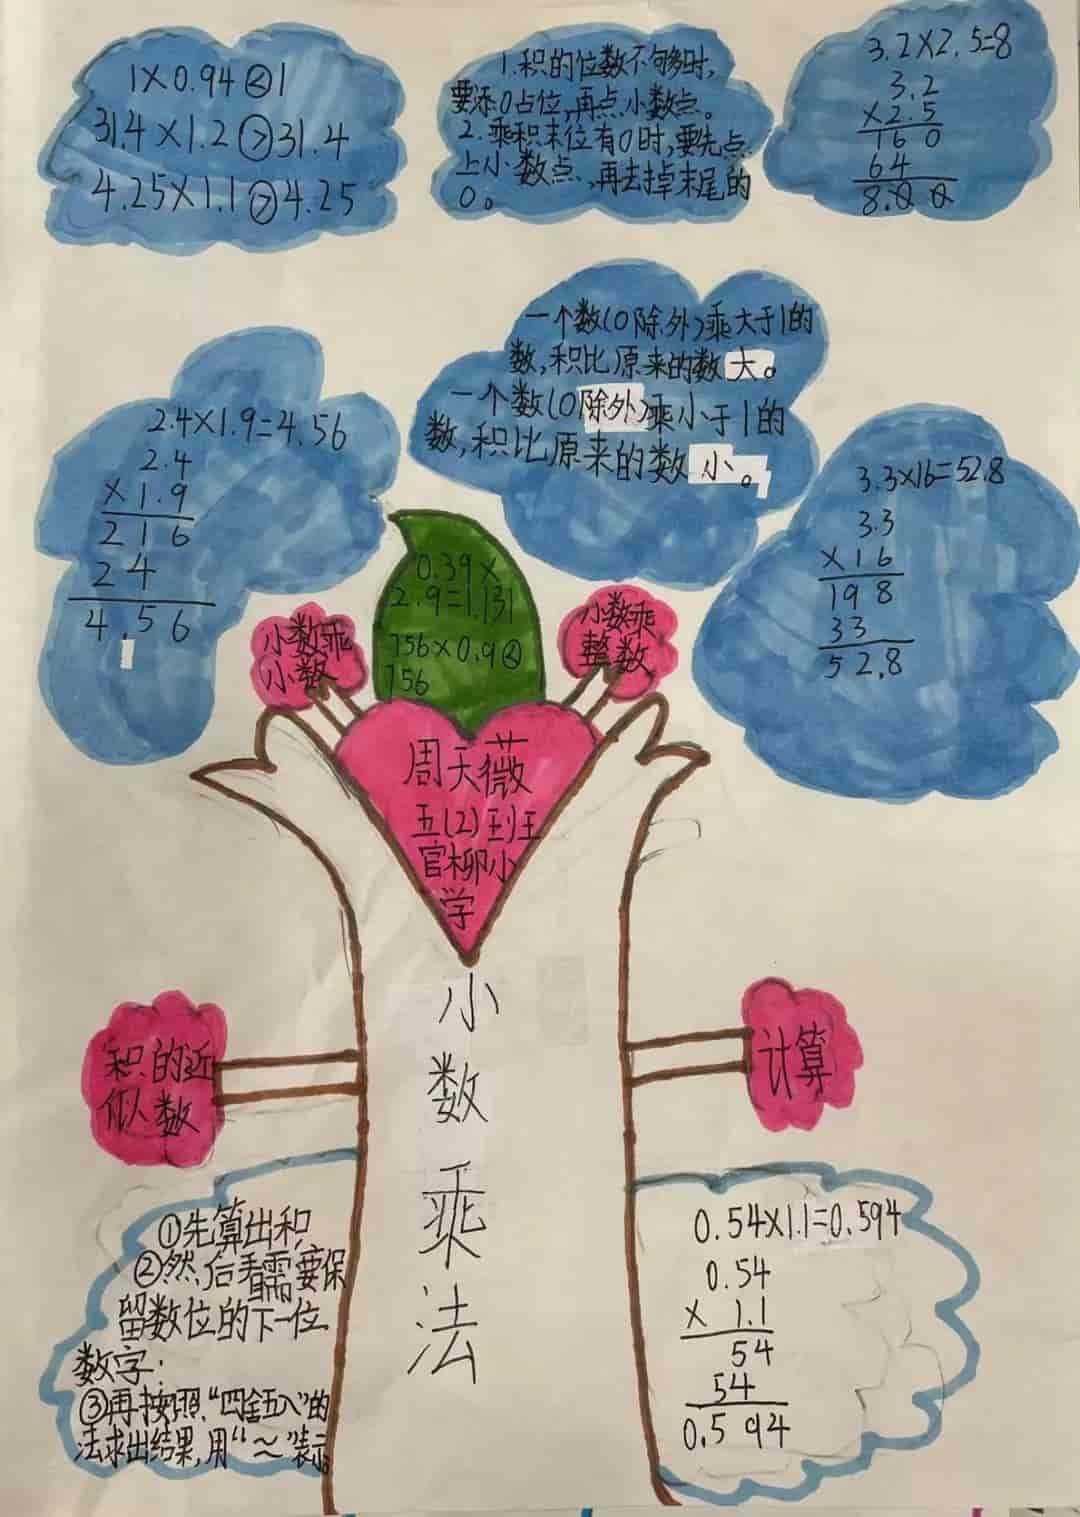 1×0.94<1
31.4×1.2>31.4
4.25×1.1>4.25
1.积的位数不够时,
要添0占位,再点小数点。
2.乘积末位有0时,要先点
上小数点,再去掉末尾的
0。
3.2×2.5=8
3.2
×2.5
160
64
8.00
一个数(0除外)乘大于1的
数,积比原来的数大。
一个数(0除外)乘小于1的
数,积比原来的数小。
2.4×1.9=4.56
2.4
×1.9
216
24
4.56
3.3×16=52.8
3.3
×16
198
33
52.8
0.39×
2.9=1.131
756×0.9<
756
小数乘
小数
小数乘
整数
周天薇
五(2)班王
官柳小
学
小数乘法
积的近
似数
计算
①先算出积
②然后看需要保
留数位的下一位
数字;
③再按照“四舍五入”的
法求出结果,用“~”表示。
0.54×1.1=0.594
0.54
×1.1
54
54
0.594